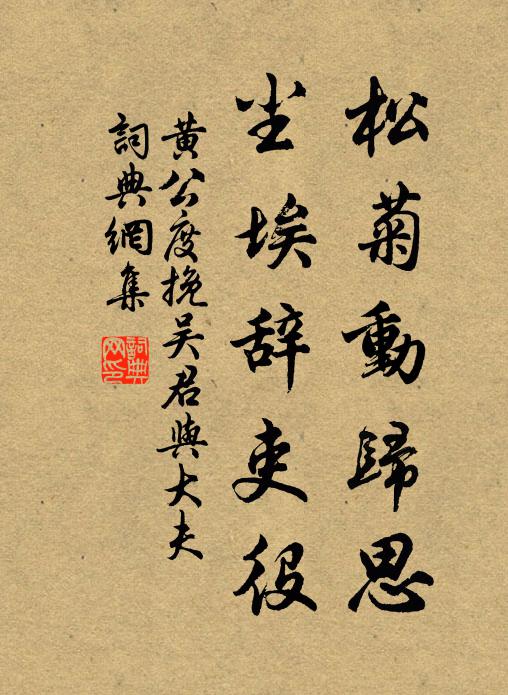 松菊動歸思
尘埃辞吏役
黄公度挽吴君與大夫
詞典網集
詞典网印